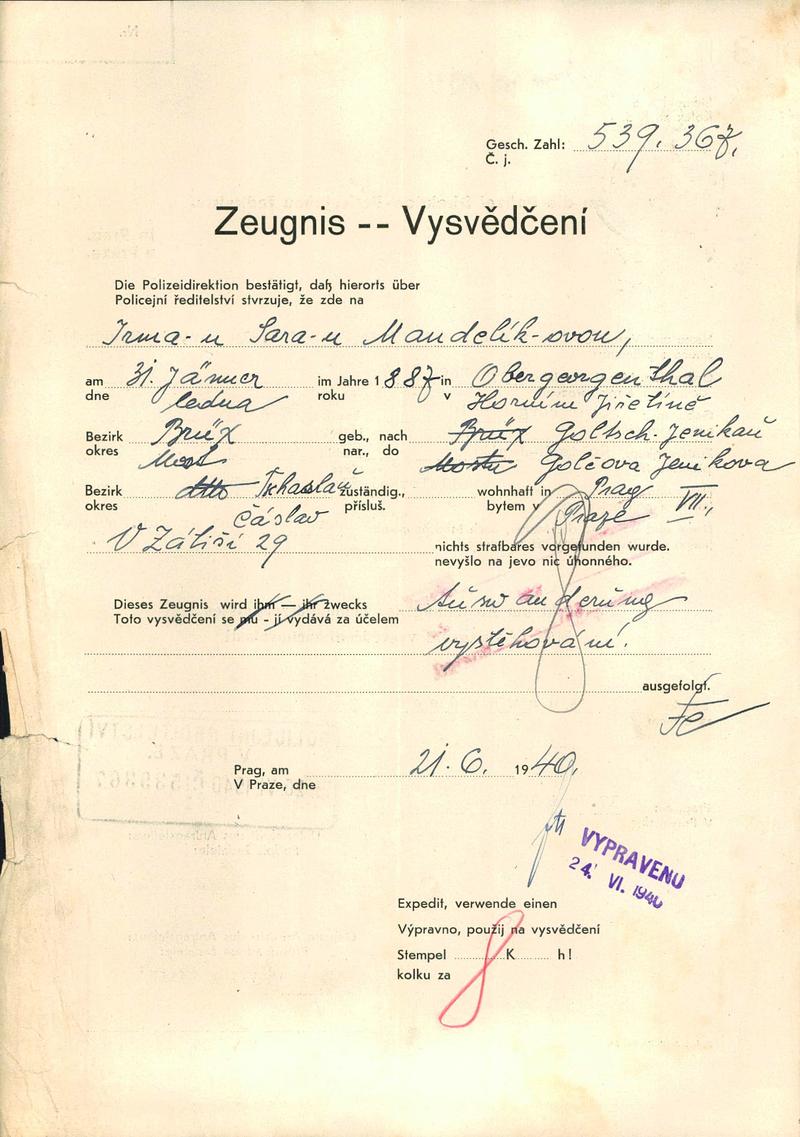 Gesch. Zahl: 539.367.
Č. j.
Zeugnis -- Vysvědčení
Die Polizeidirektion bestätigt, daß hierorts über
Policejní ředitelství stvrzuje, že zde na
Irma-u Sara-u Mandelík-ovou,
am 31. Jänner im Jahre 1887 in Obergeorgenthal
dne ledna roku v Horním Jiřetíně
Bezirk Brüx geb., nach Brüx Goltsch-Jenikau
okres Most nar., do Mostu Golčova Jeníkova
Bezirk dtto Tschaslau zuständig., wohnhaft in Prag
okres Čáslav přísluš. bytem v Praze VII.,
V Zátiší 29 nichts strafbares vorgefunden wurde.
nevyšlo na jevo nic úhonného.
Dieses Zeugnis wird ihm — ihr zwecks Auswanderung
Toto vysvědčení se mu - jí vydává za účelem
vystěhování.
ausgefolgt.
Prag, am 21.6. 1940.
V Praze, dne
VYPRAVENO
24. VI. 1940
Expedit, verwende einen
Výpravno, použij na vysvědčení
Stempel K h!
kolku za